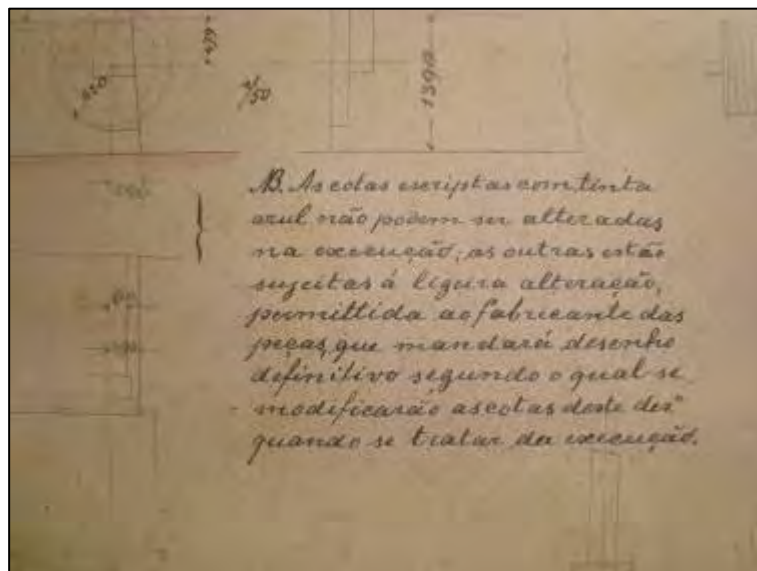 1390
NB. As cotas escriptas com tinta
azul não podem ser alteradas
na execução; as outras estão
sujeitas á ligura alteração,
permittida ao fabricante das
peças, que mandará desenho
definitivo segundo o qual se
modificarão as cotas deste desº
quando se tratar da execução.